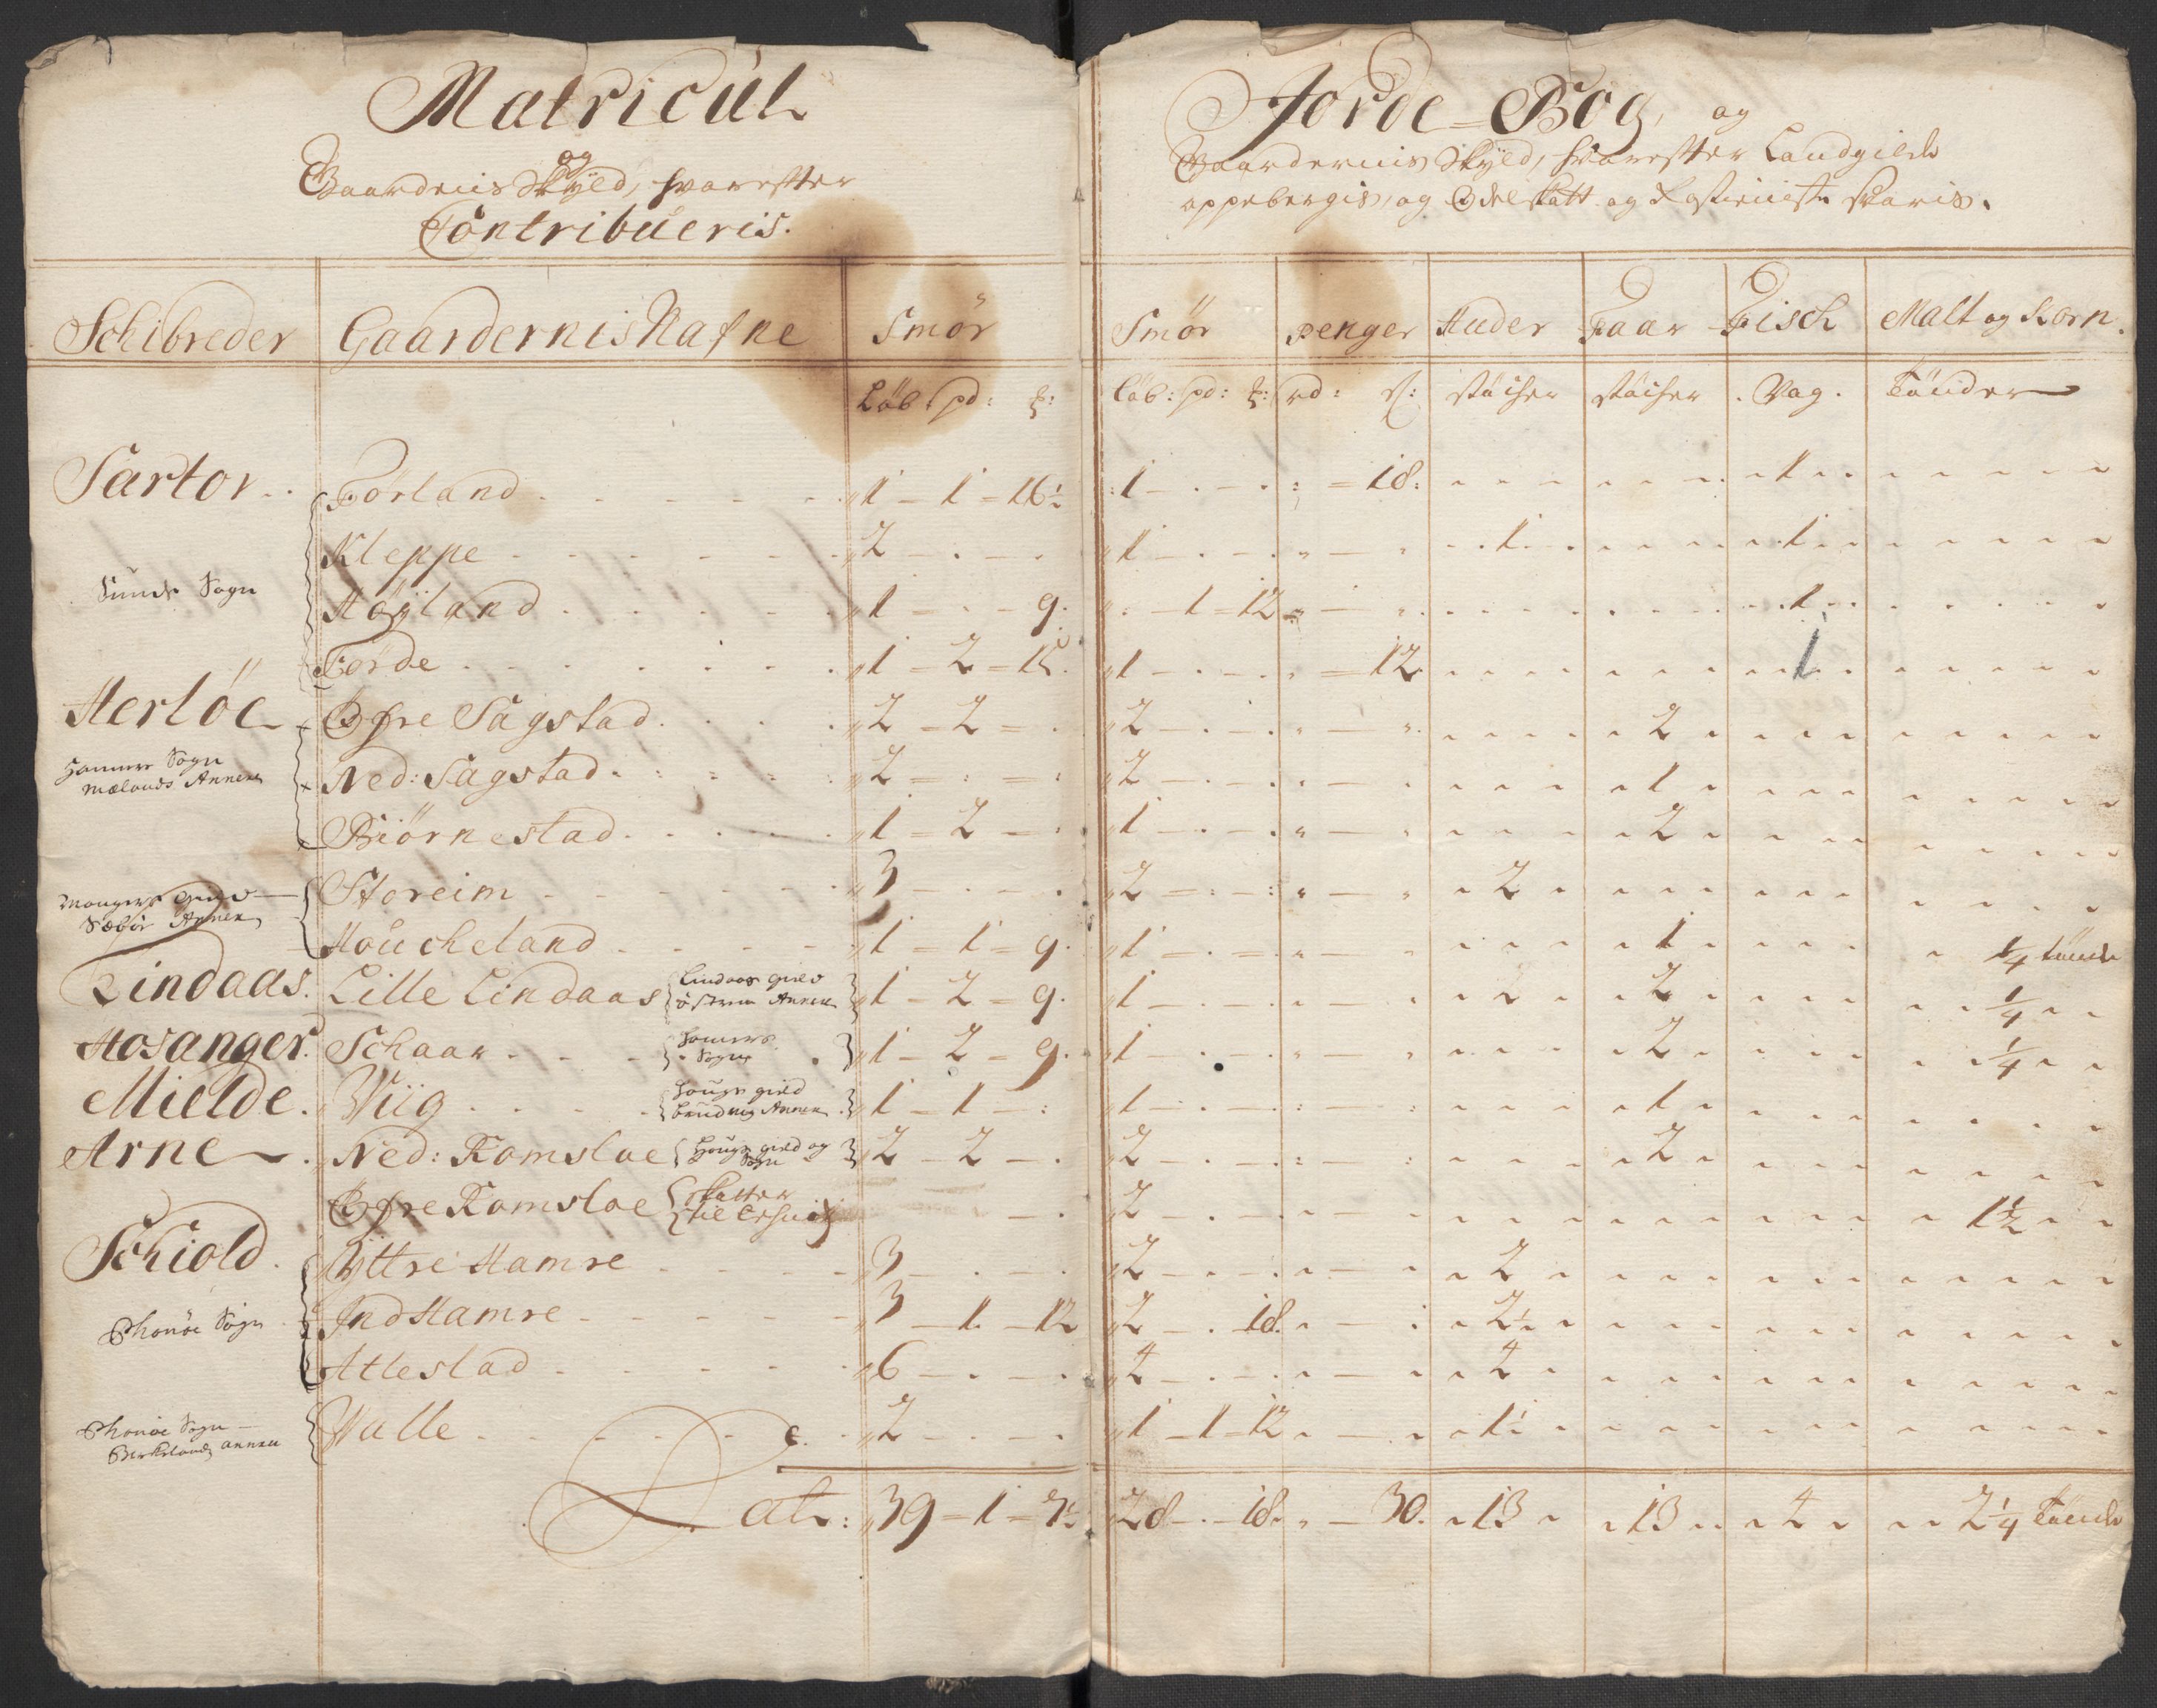 Matricul
og
Gaardenis Skyld, hvorefter
Contribueris.
Jorde-Bog, og
Gaardernis Skyld, hvorefter Landgilde
oppebergis, og Odelskatt og Rostieniste svaris.
Schibreder Gaardernis Nafne Smör Smör penger Huder Faar Fisch Malt og Korn.
Löb: pd: Löb: pd: rd: s: Vag. Tönder
Sartor Förland 1 - 1 - 16½ 1 - . - . = 18: 1
Kleppe 2 - . - . 1 - . - . 1 1
Sunds Sogn Höÿland 1 - . - 9. . - 1 - 12 1
Förde 1 - 2 - 15. 1 - . - . = 12 1
Herlöe Öfre Sagstad 2 - 2 - . 2 - . - . 2
Hammers Sogn
Mælands Annex Ned: Sagstad 2 - . - . 2 - . - . 1
Biörnestad 1 - 2 - . 1 - . - . 2
Mangers gield
Sæbör Annex Storeim 3 - . - . 2 - . - . 2
Houcheland 1 - 1 - 9. 1 - . - . 1 ¼ tönde
Lindaas. Lille Lindaas Lindaas gield
östrem Annex 1 - 2 - 9. 1 - . - . 2 ¼
Hosanger. Schaar Hamers
Sogn 1 - 2 - 9. 1 - . - . 2 ¼
Mielde. Wiig Hougs gield
bruduig Annex 1 - 1 - : 1 - . - . 1
Arne Ned: Romsloe Hougs gield og
Sogn 2 - 2 - . 2 - . - . 2
Öfre Romsloe skatter
til - . 2 - . - . 1½
Schiold. Yttre Hamre 3 - . - . 2 - . - . 2
Phanöe Sogn Ind Hamre 3 - 1 - 12 2 - . 18. 2½
Atlestad 6 - . - . 4 - . - . 4
Phanöe Sogn
Birkelands annex Walle 2 - . - . 1 - 1 - 12 1½
Lat: 39 - 1 - 7½ 28 - . - 18. - 30. 13 13 4 2¼ Tönde